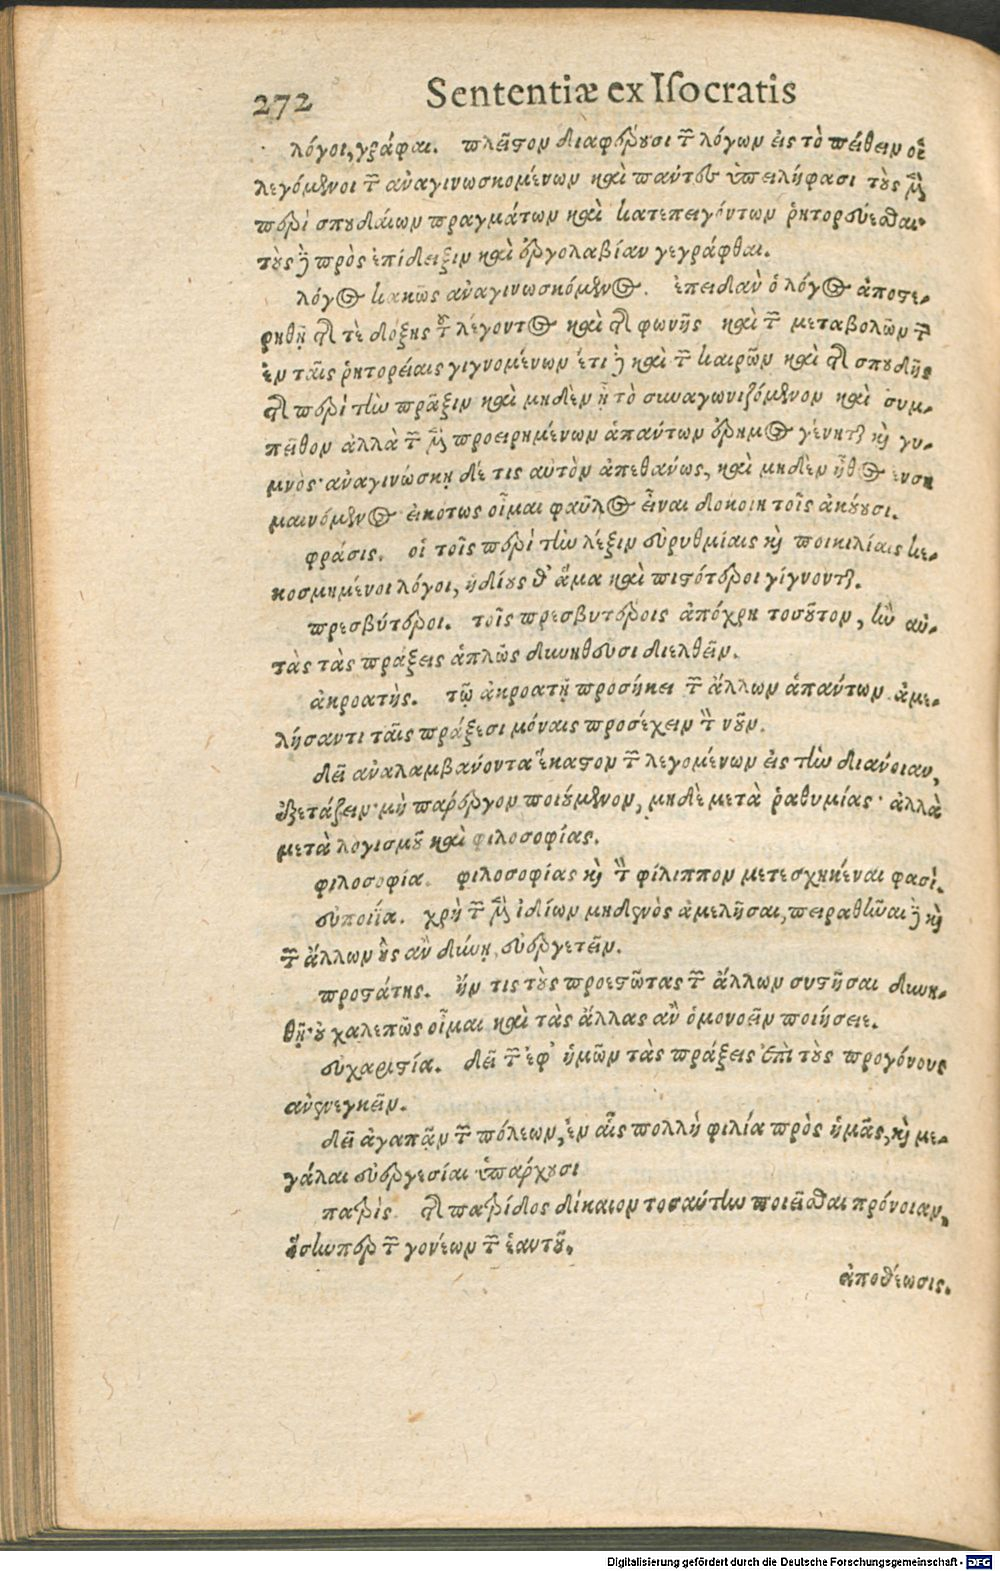 272 Sententiæ ex Iſocratis
λόγοι, γράφαι. πλεῖστον διαφέρουσι τῶν λόγων εἰς τὸ πείθειν οἱ
λεγόμενοι τῶν ἀναγινωσκομένων καὶ πάντες ὑπειλήφασι τοὺς μὲν
περὶ σπουδαίων πραγμάτων καὶ κατεπειγόντων ῥητορεύεσθαι·
τοὺς δὲ πρὸς ἐπίδειξιν καὶ ἐργολαβίαν γεγράφθαι.
λόγος κακῶς ἀναγινωσκόμενος. ἐπειδὰν ὁ λόγος ἀποστε-
ρηθῇ τῆς τε δόξης τοῦ λέγοντος καὶ τῆς φωνῆς καὶ τῶν μεταβολῶν τῶν
ἐν ταῖς ῥητορείαις γιγνομένων ἔτι δὲ καὶ τῶν καιρῶν καὶ τῆς σπουδῆς
τῆς περὶ τὴν πρᾶξιν καὶ μηδὲν ᾖ τὸ συναγωνιζόμενον καὶ συμ-
πεῖθον ἀλλὰ τῶν μὲν προειρημένων ἁπάντων ἔρημος γένηται καὶ γυ-
μνὸς· ἀναγινώσκῃ δέ τις αὐτὸν ἀπεθάνως, καὶ μηδὲν ἦθος ἐνση
μαινόμενος εἰκότως οἶμαι φαῦλος εἶναι δοκοίη τοῖς ἀκούουσι.
φράσις. οἱ τοῖς περὶ τὴν λέξιν εὐρυθμίαις καὶ ποικιλίαις κε-
κοσμημένοι λόγοι, ἡδίους θ' ἅμα καὶ πιστότεροι γίγνονται.
πρεσβύτεροι. τοῖς πρεσβυτέροις ἀπόχρη τοσοῦτον, ἢν αὐ-
τὰς τὰς πράξεις ἁπλῶς δυνηθῶσι διελθεῖν.
ἀκροατὴς. τῷ ἀκροατῇ προσήκει τῶν ἄλλων ἁπάντων ἀμε-
λήσαντι ταῖς πράξεσι μόναις προσέχειν τὸν νοῦν.
δεῖ ἀναλαμβάνοντα ἕκαστον τῶν λεγομένων εἰς τὴν διάνοιαν,
ἐξετάζειν· μὴ πάρεργον ποιούμενον, μηδὲ μετὰ ῥαθυμίας· ἀλλὰ
μετὰ λογισμοῦ καὶ φιλοσοφίας.
φιλοσοφία. φιλοσοφίας καὶ τὸν φίλιππον μετεσχηκέναι φασί.
εὐποιΐα. χρὴ τῶν μὲν ἰδίων μηδενὸς ἀμελῆσαι, πειραθῆναι δὲ καὶ
τῶν ἄλλων οὓς ἂν δύνῃ, εὐεργετεῖν.
προστάτης. ἤν τις τοὺς προεστῶτας τῶν ἄλλων συστῆσαι δυνη-
θῇ· οὐ χαλεπῶς οἶμαι καὶ τὰς ἄλλας ἂν ὁμονοεῖν ποιήσειε.
εὐχαριστία. δεῖ τῶν ἐφ' ἡμῶν τὰς πράξεις ἐπὶ τοὺς προγόνους
ἀνενεγκεῖν.
δεῖ ἀγαπᾷν τῶν πόλεων, ἐν αἷς πολλὴ φιλία πρὸς ἡμᾶς, καὶ με-
γάλαι εὐεργεσίαι ὑπάρχουσι
πατρίς. τῆς πατρίδος δίκαιον τοσαύτην ποιεῖσθαι πρόνοιαν,
ὅσηνπερ τῶν γονέων τῶν ἑαυτοῦ.
ἀποθέωσις.
Digitalisierung gefördert durch die Deutsche Forschungsgemeinschaft - DFG